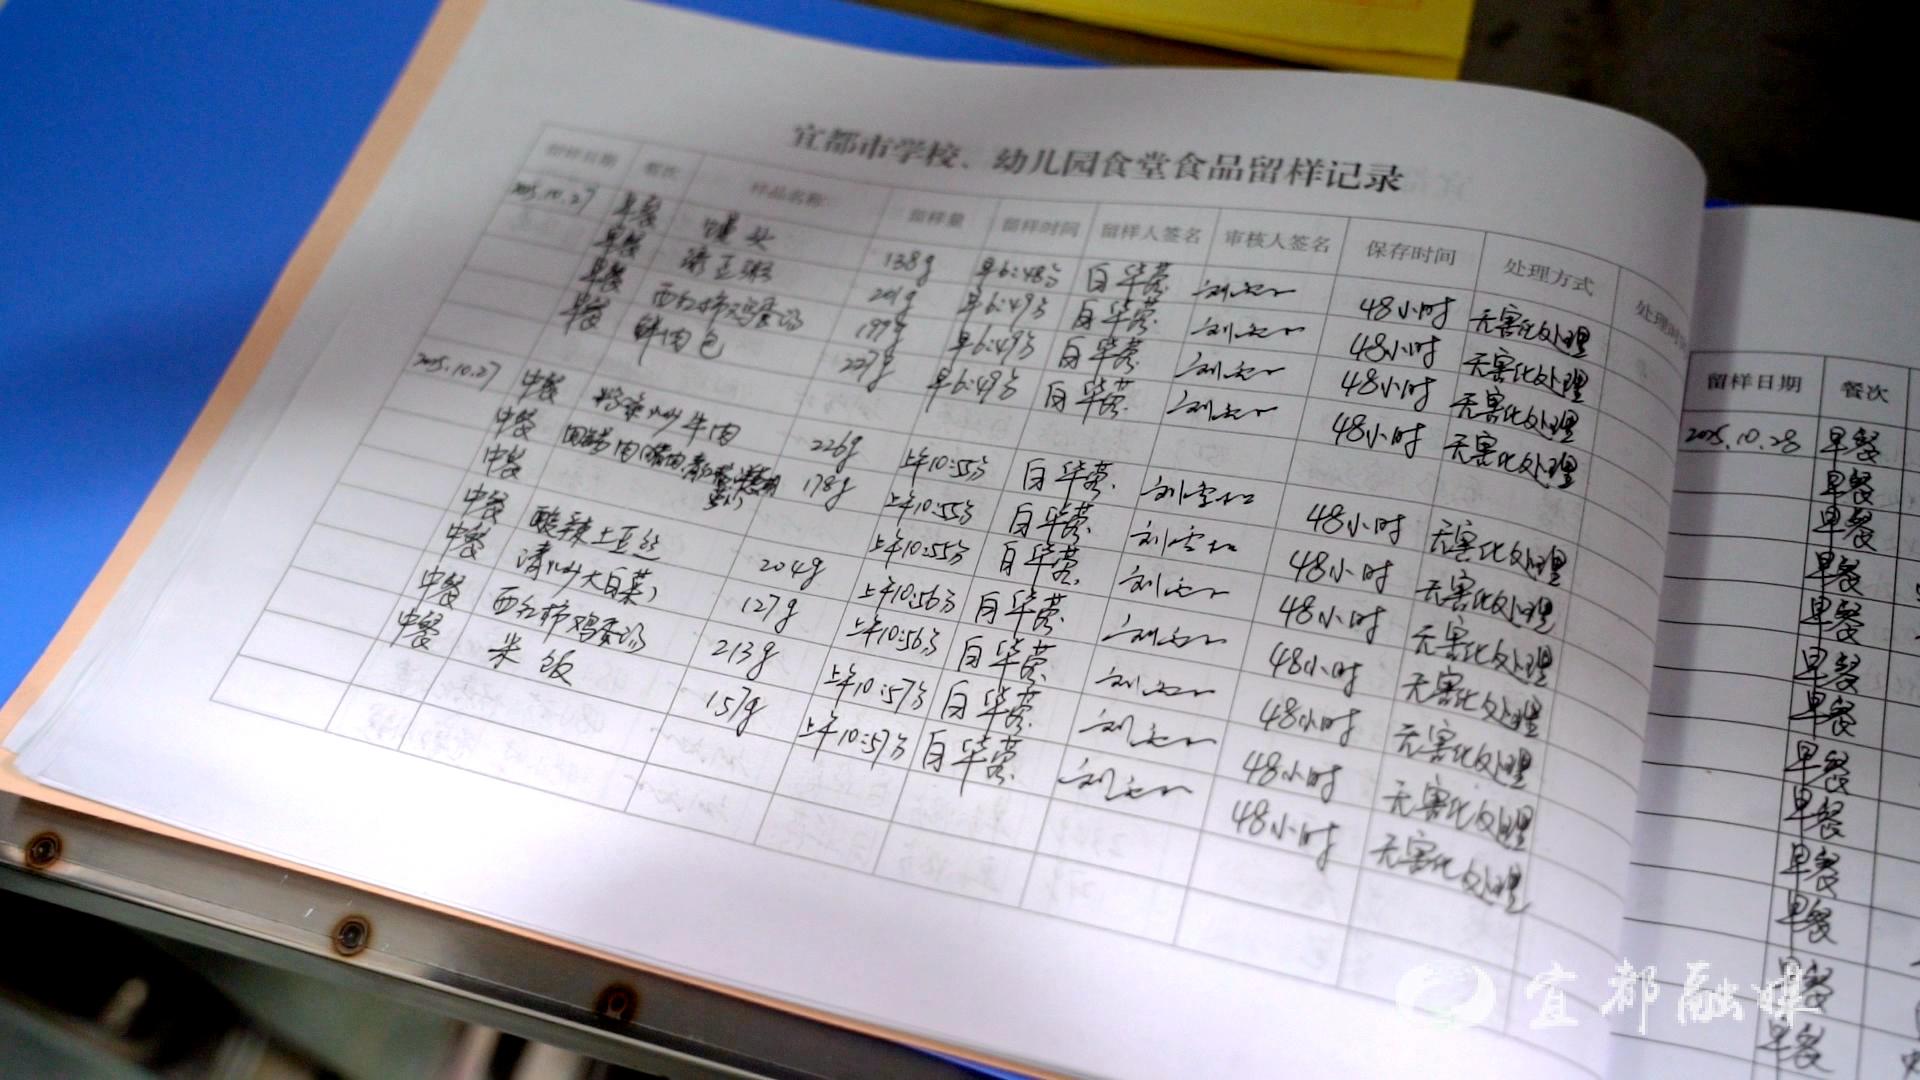 宜都市学校、幼儿园食堂食品留样记录
留样日期 餐次 样品名称 留样量 留样时间 留样人签名 审核人签名 保存时间 处理方式 处理时
2025.10.27 早餐 馒头 138g 早6:48分 白华蓉 48小时 无害化处理
早餐 201g 早6:49分 白华蓉 48小时 无害化处理
早餐 西红柿鸡蛋汤 199g 早6:49分 白华蓉 48小时 无害化处理
早餐 鲜肉包 227g 早6:49分 白华蓉 48小时 无害化处理
2025.10.27 中餐 牛肉 226g 上午10:55分 白华蓉 48小时 无害化处理
中餐 178g 上午10:55分 白华蓉 48小时 无害化处理
中餐 上午10:55分 白华蓉 48小时 无害化处理
中餐 酸辣土豆丝 204g 上午10:56分 白华蓉 48小时 无害化处理
中餐 清炒大白菜 127g 上午10:56分 白华蓉 48小时 无害化处理
中餐 西红柿鸡蛋汤 213g 上午10:57分 白华蓉 48小时 无害化处理
中餐 米饭 157g 上午10:57分 白华蓉 48小时 无害化处理
留样日期 餐次
2025.10.28 早餐
早餐
早餐
早餐
早餐
早餐
早餐
早餐
早餐
早餐
早餐
早餐
早餐
宜都融媒